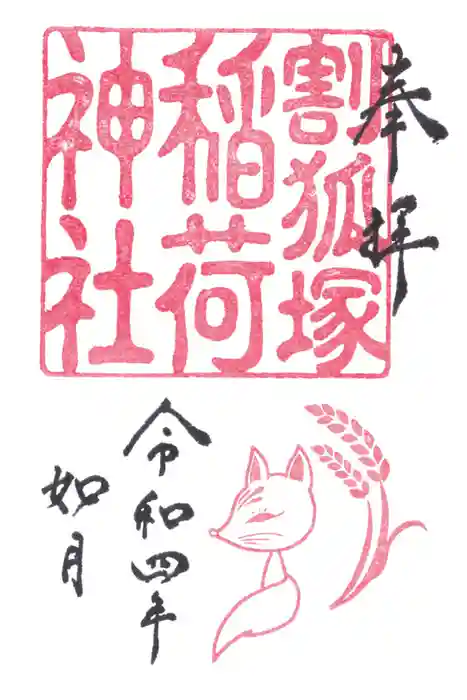 奉拝
割狐塚
稲荷
神社
令和四年
如月